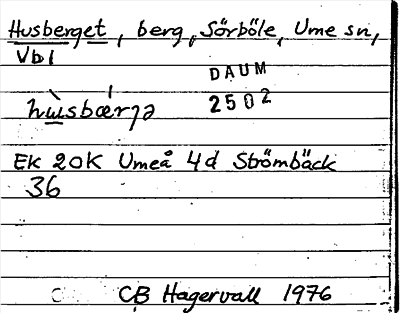 Husberget, berg, Sörböle, Ume sn,
Vbl
DAUM
2502
hùsbǽrjə
EK 20K Umeå 4d Strömbäck
36
CB Hagervall 1976